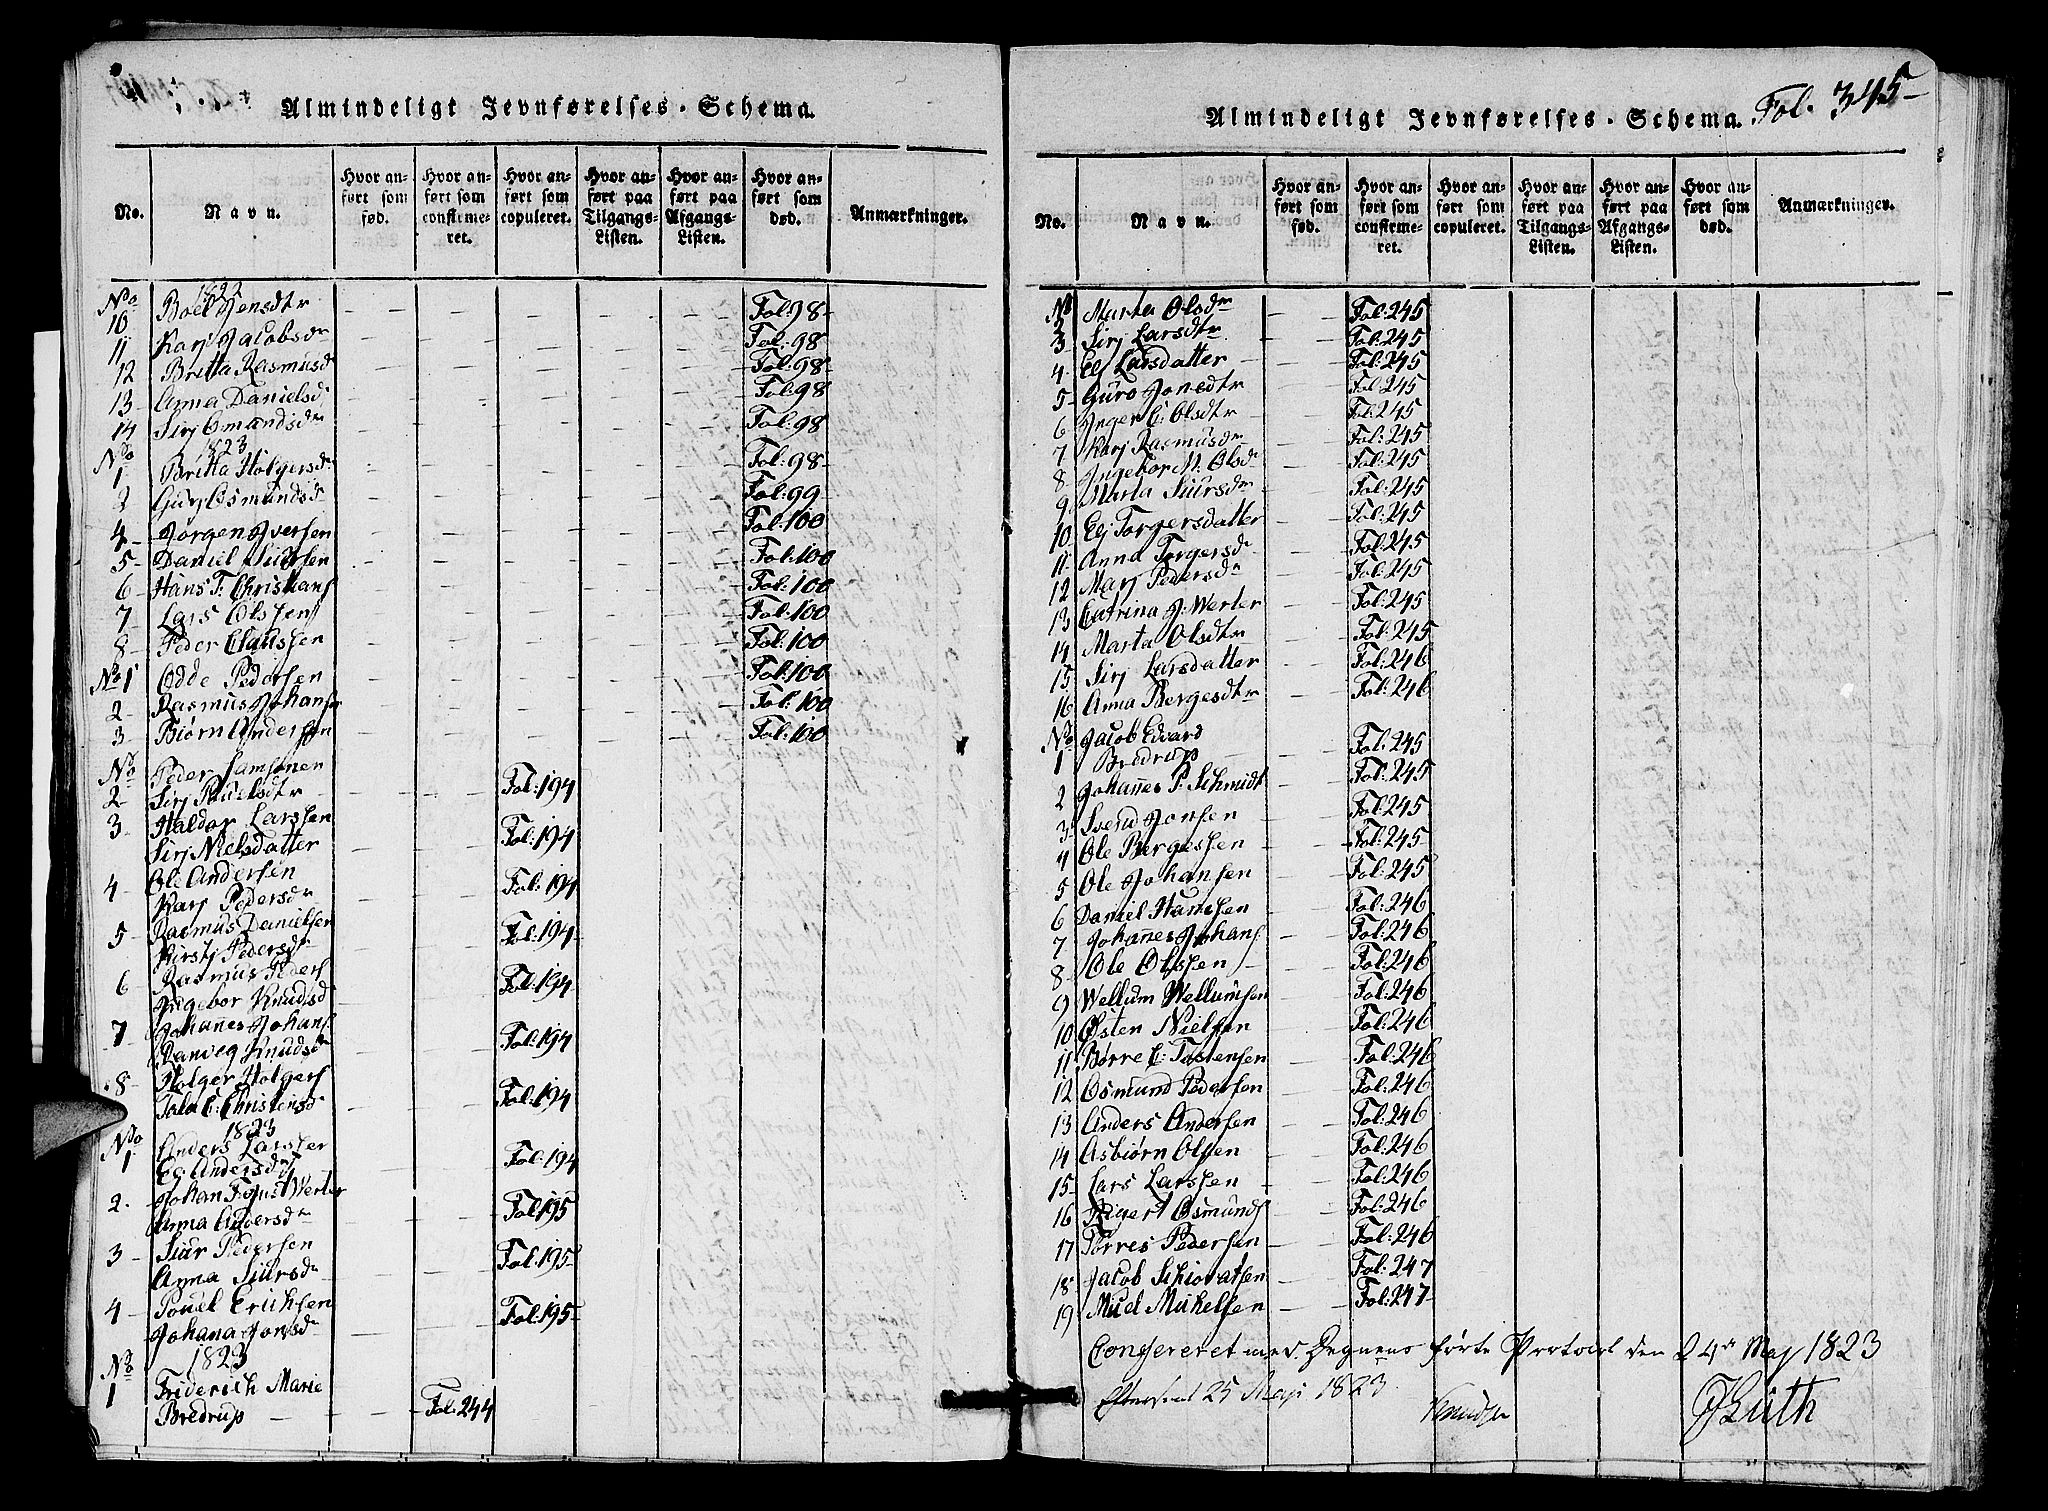 Almindeligt Jevnførelses-Schema.
No.
Navn.
Hvor anført som fød.
Hvor anført som confirmeret.
Hvor anført som copuleret.
Hvor anført paa Tilgangs-Listen.
Hvor anført paa Afgangs-Listen.
Hvor anført som død.
Anmærkninger.
1822
No 10 Boel Jensdtr Fol 98
11 Karj Jacobsdr Fol: 98
12 Britta Rasmusd Fol: 98
13 Anna Danielsd Fol: 98
14 Sirj Osmundsdtr Fol: 98
1823
No 1 Britta Holgersdr Fol: 98
2 Gurj Osmundsd Fol: 99
4 Jørgen Iversen Fol: 100
5 Daniel Siursen Fol: 100
6 Hans T: Christians Fol: 100
7 Lars Olssen Fol: 100
8 Peder Claussen Fol: 100
No 1 Odde Pedersen Fol: 100
2 Rasmus Johansen Fol: 100
3 Biørn Andersen Fol: 100
No Peder Samsonen
2 Sirj Paulsdtr Fol: 194
3 Haldor Larssen
Sirj Nielsdatter Fol: 194
4 Ole Andersen
Karj Pedersdr Fol: 194
5 Rasmus Danielsen
Kirstj Pedersdr Fol: 194
6 Rasmus Peders
Ingebor Knudsd Fol: 194
7 Johanes Johans
Ranveg Knudsd Fol: 194
8 Holger Holgers
Tala C: Christensd Fol: 194
1823
No 1 Anders Larssen
Elj Andersdr Fol: 194
2 Johan Werler
Anna Andersdr Fol: 195
3 Siur Pedersen
Anna Siursdr Fol: 195
4 Pouel Erichsen
Johana Jonsdr Fol: 195
1823
No 1 Friderich Marie
Bredrup Fol: 244
Almindeligt Jevnførelses-Schema. Fol. 345
No.
Navn.
Hvor anført som fød.
Hvor anført som confirmeret.
Hvor anført som copuleret.
Hvor anført paa Tilgangs-Listen.
Hvor anført paa Afgangs-Listen.
Hvor anført som død.
Anmærkninger.
No 2 Marta Olsdr Fol: 245
3 Sirj Larsdtr Fol: 245
4 Elj Larsdatter Fol: 245
5 Guro Jonsdtr Fol: 245
6 Inger C: Olsdtr Fol: 245
7 Karj Rasmusdr Fol: 245
8 Ingebor M: Olsdr Fol: 245
9 Marta Siursdr Fol: 245
10 Elj Torgersdatter Fol: 245
11 Anna Torgersdr Fol: 245
12 Marj Pedersdr Fol: 245
13 Catrina J: Werler Fol: 245
14 Marta Olsdtr Fol: 245
15 Sirj Larsdatter Fol: 246
16 Anna Bergesdtr Fol: 246
No Jacob Edvard
1 Bredrup Fol: 245
2 Johannes P: Schmidt Fol: 245
3 Svend Jonsen Fol: 245
4 Ole Bergessen Fol: 245
5 Ole Johansen Fol: 245
6 Daniel Hanssen Fol: 246
7 Johannes Johans Fol: 246
8 Ole Olssen Fol: 246
9 Wellum Wellumsen Fol: 246
10 Østen Nielsen Fol: 246
11 Børre C: Tostensen Fol: 246
12 Osmund Pedersen Fol: 246
13 Anders Andersen Fol: 246
14 Asbiørn Olsen Fol: 246
15 Lars Larssen Fol: 246
16 Osmunds Fol: 246
17 Torres Pedersen Fol: 246
18 Jacob Schiovatsen Fol: 247
19 Mikelsen Fol: 247
Confereret med Degnens førte Protocol den 24de Maj 1823
Efterseet 25 Maji 1823
Knudsen